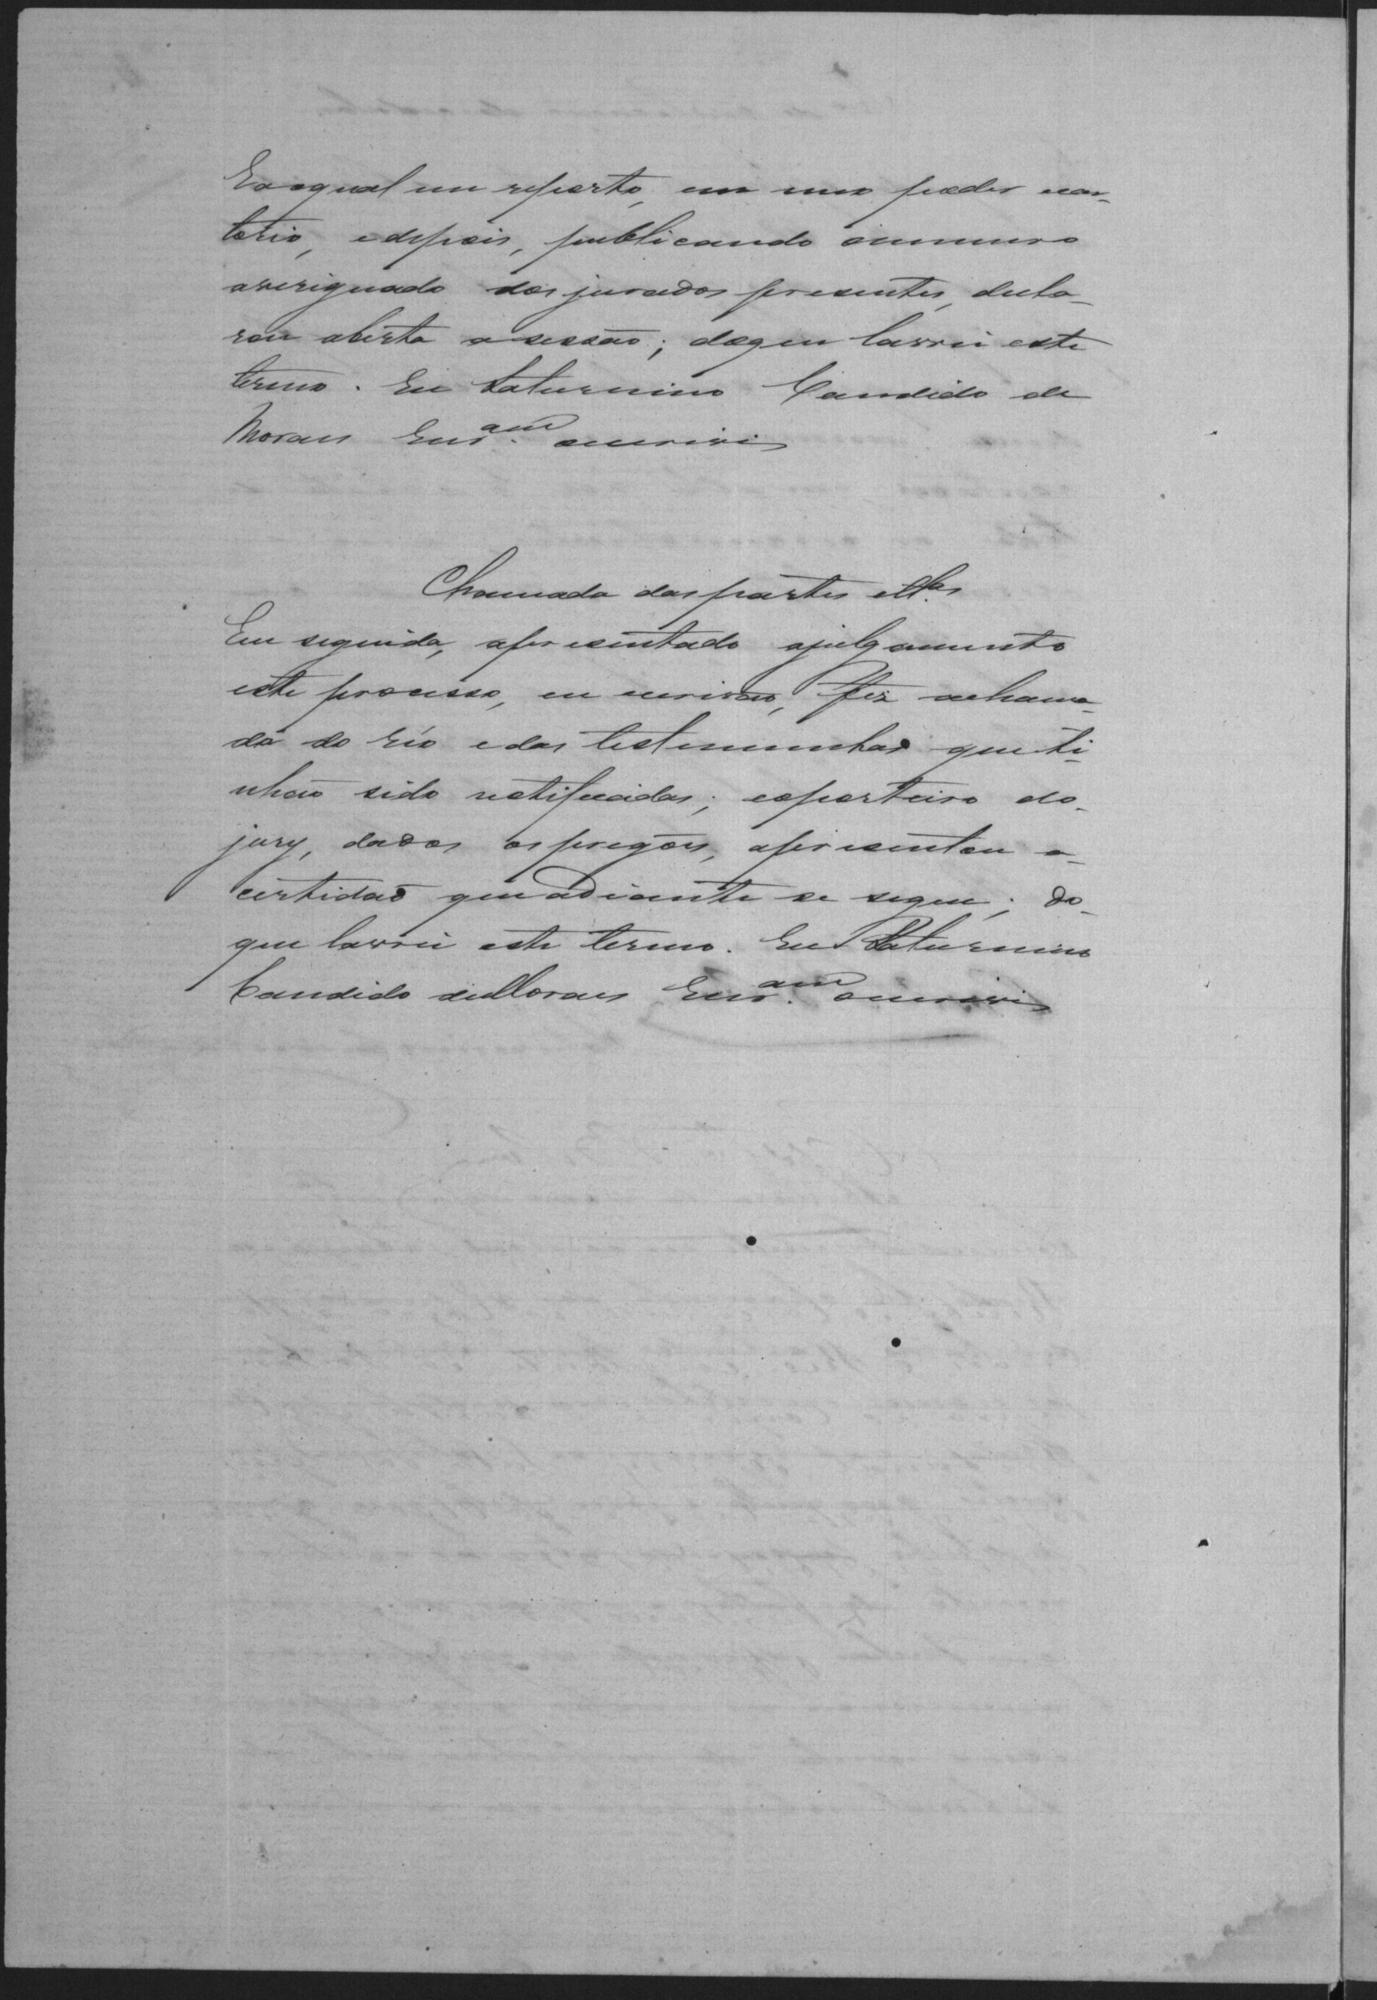 Eo qual me reporto, em meu poder e car-
torio, e depois, publicando o numero
averiguado dos jurados presentes, decla-
rou aberta a sessão; do q eu lavrei este
termo. Eu Saturnino Candido de
Moraes Escr.am o escrevi
Chamada das partes e tt.as
Em seguida, apresentado a julgamento
este processo, eu escrivão, fiz a chama-
da do réo e das testemunhas que ti-
nhão sido notificadas; e o porteiro do
jury, dados os pregões, apresentou a
certidão que adiante se segue; do
que lavrei este termo. Eu Saturnino
Candido de Moraes Escr.am o escrevi